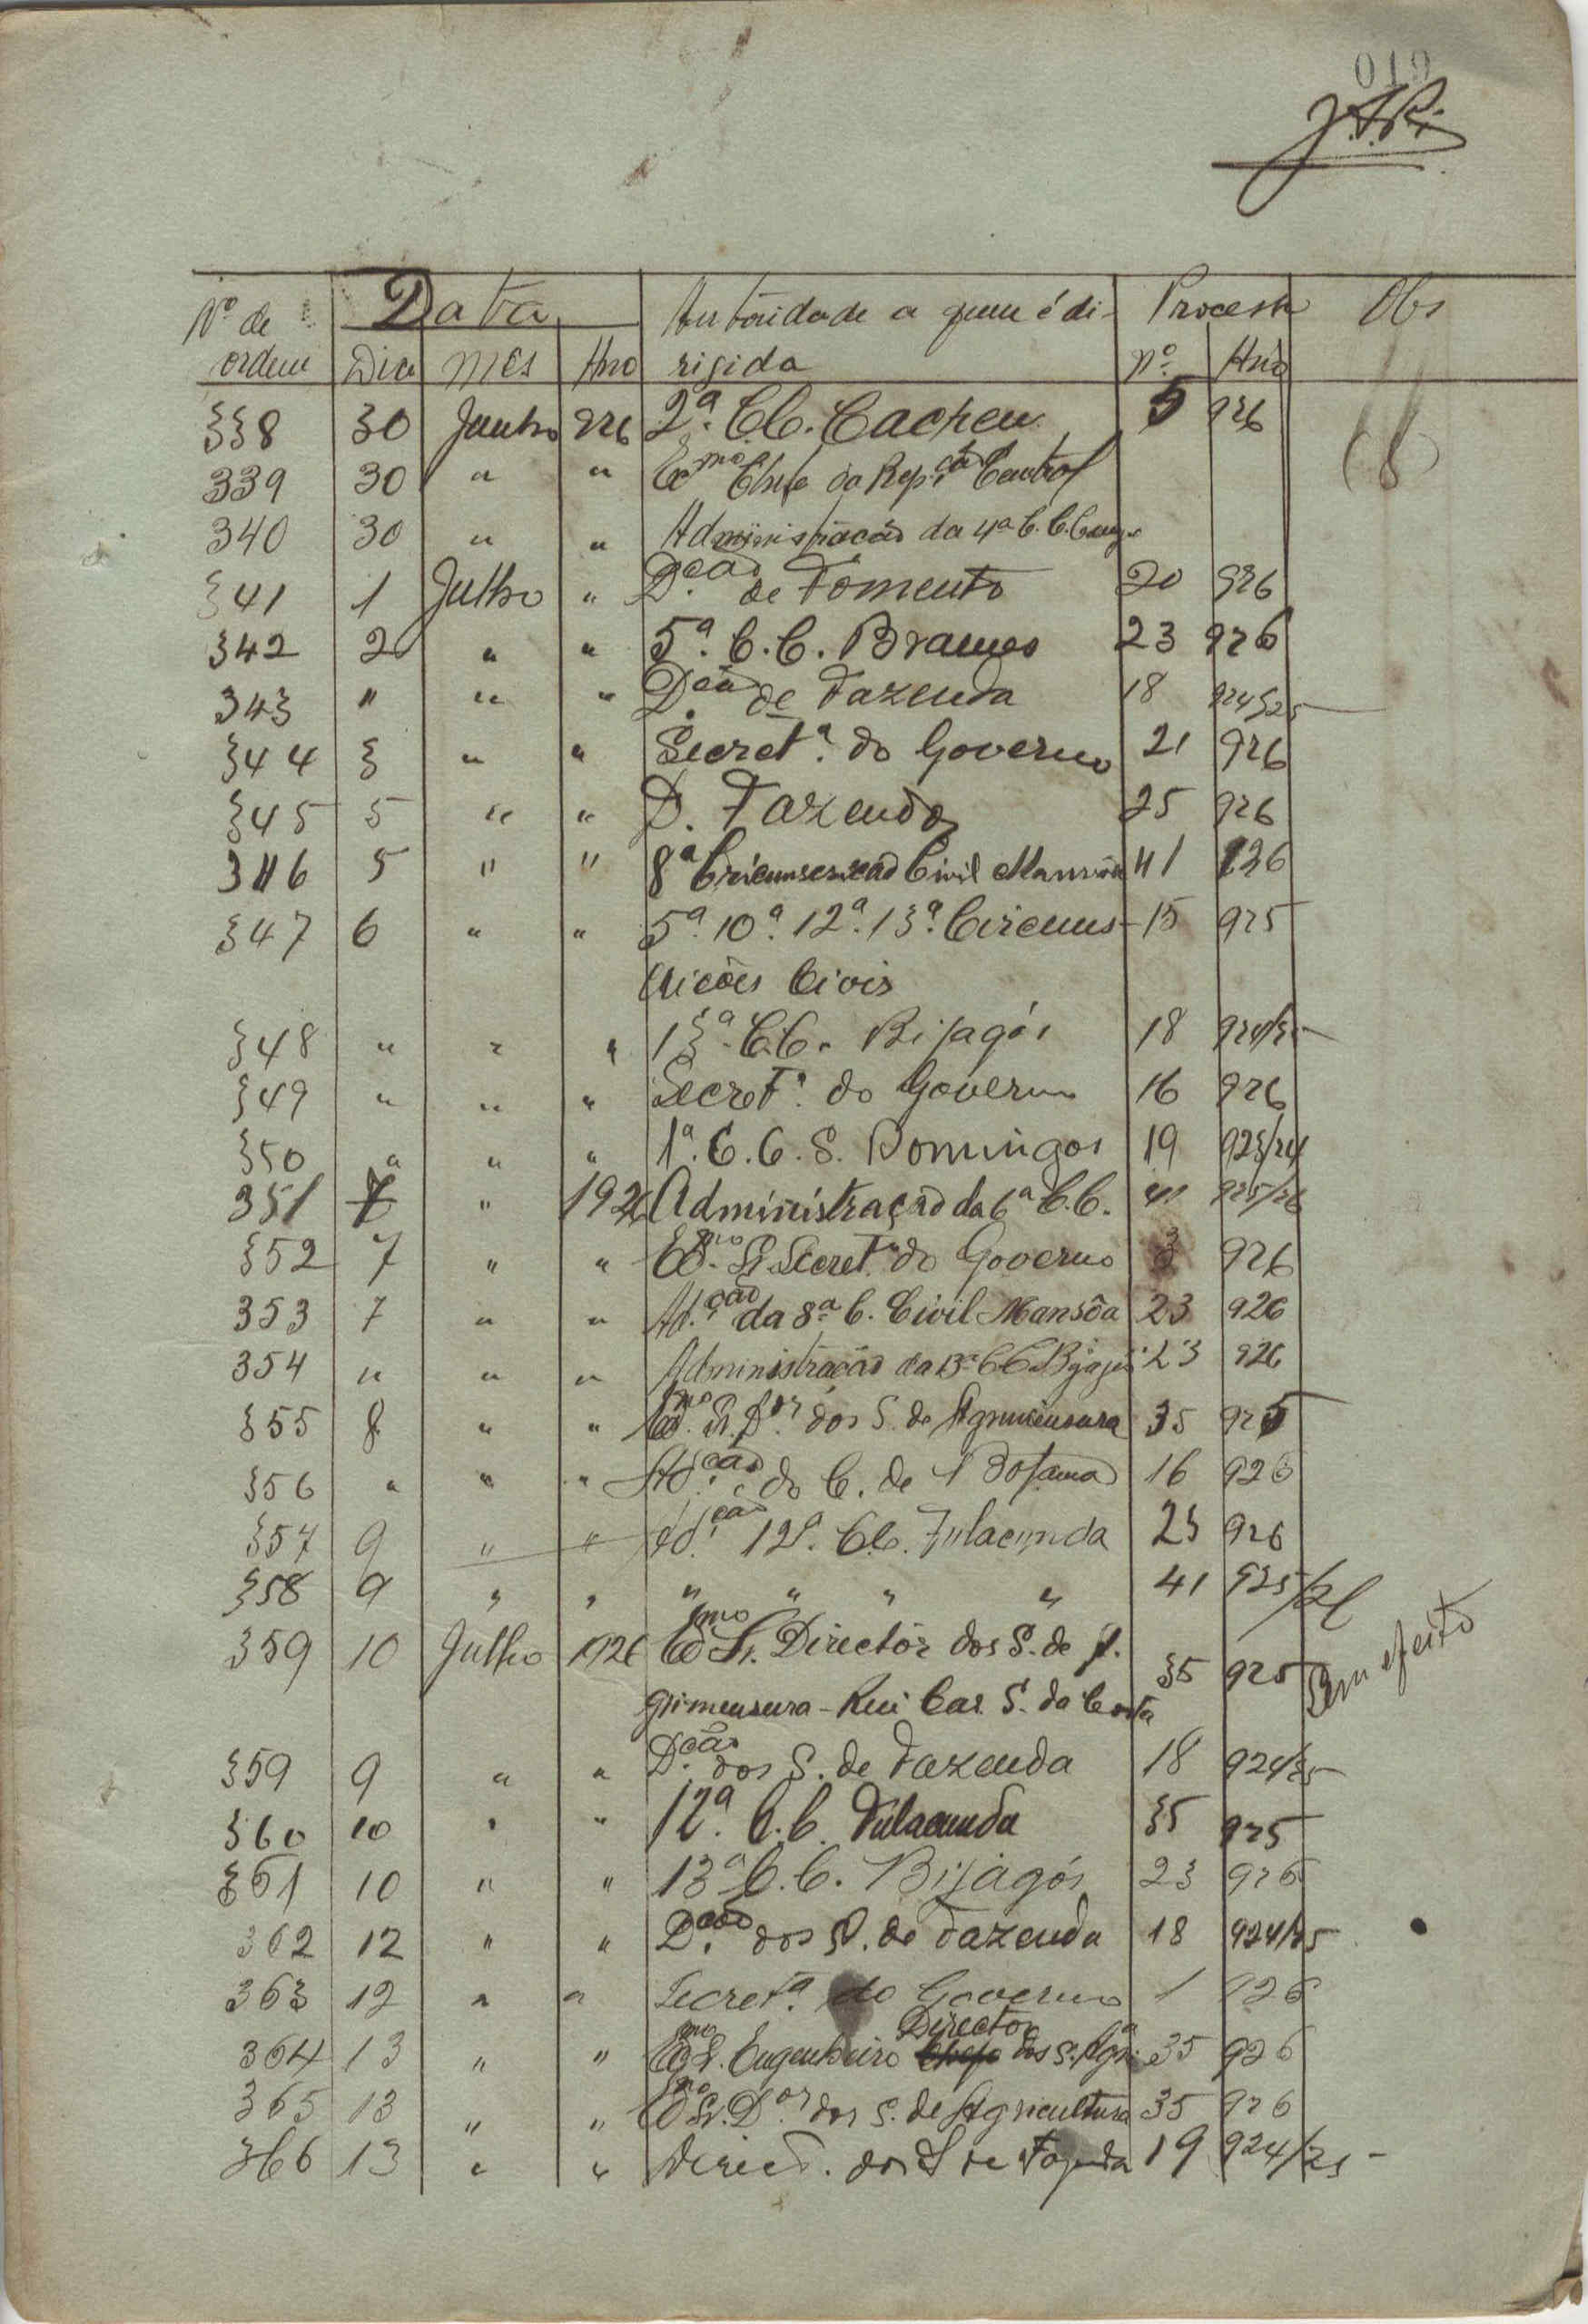 019
Nº de Data Autoridade a quem é di- Processo Obs
ordem Dia mês Ano rigida nº. Ano
338 30 Junho 926 2ª. C.C. Cacheu 5 926
339 30 " " Exmo Chefe da Rep.ção Central
340 30 " " Administração da 4ª C.C.
341 1 Julho " D.ção de Fomento 20 926
342 2 " " 5ª. C.C. Brames 23 926
343 " " " D.ção de Fazenda 18 924/25
344 3 " " Secretª. do Governo 21 926
345 5 " " D. Fazenda 25 926
346 5 " " 8ª Circunscrição Civil Mansôa 41 926
347 6 " " 5ª. 10ª. 12ª. 13ª. Circuns- 15 925
crições Civis
348 " " " 13ª. C.C. Bijagós 18 924/25
349 " " " Secretª. do Governo 16 926
350 " " " 1ª. C.C. S. Domingos 19 923/24
351 7 " 1926 Administração da 6ª C.C. 41 925/26
352 7 " " Exmo. Sr. Secretº. do Governo 3 926
353 7 " " Ad.ção da 8ª C. Civil Mansôa 23 926
354 " " " Administração da 13ª C.C. Bijagós 23 926
355 8 " " Exmo. Sr. D.or dos S. de Agrimensura 35 925
356 " " " Ad.ção do C. de Bolama 16 926
357 9 " " Ad.ção 12ª. C.C. Fulacunda 23 926
358 9 " " " " " " 41 925/26
359 10 Julho 1926 Exmo Sr. Director dos S. de A.
grimensura - Rui Car. S. da Costa 35 925 Sem efeito
359 9 " " D.ção dos S. de Fazenda 18 924/25
360 10 " " 12ª. C.C. Fulacunda 35 925
361 10 " " 13ª C.C. Bijagós 23 926
362 12 " " D.ção dos S. de Fazenda 18 924/25
363 12 " " Secretª. do Governo 1 926
Director
364 13 " " Exmo Sr. Engenheiro Chefe dos S. Agrª. 35 926
365 13 " " Exmo Sr. D.or dos S. de Agricultura 35 926
366 13 " " Direcç. dos S de Fazenda 19 924/25